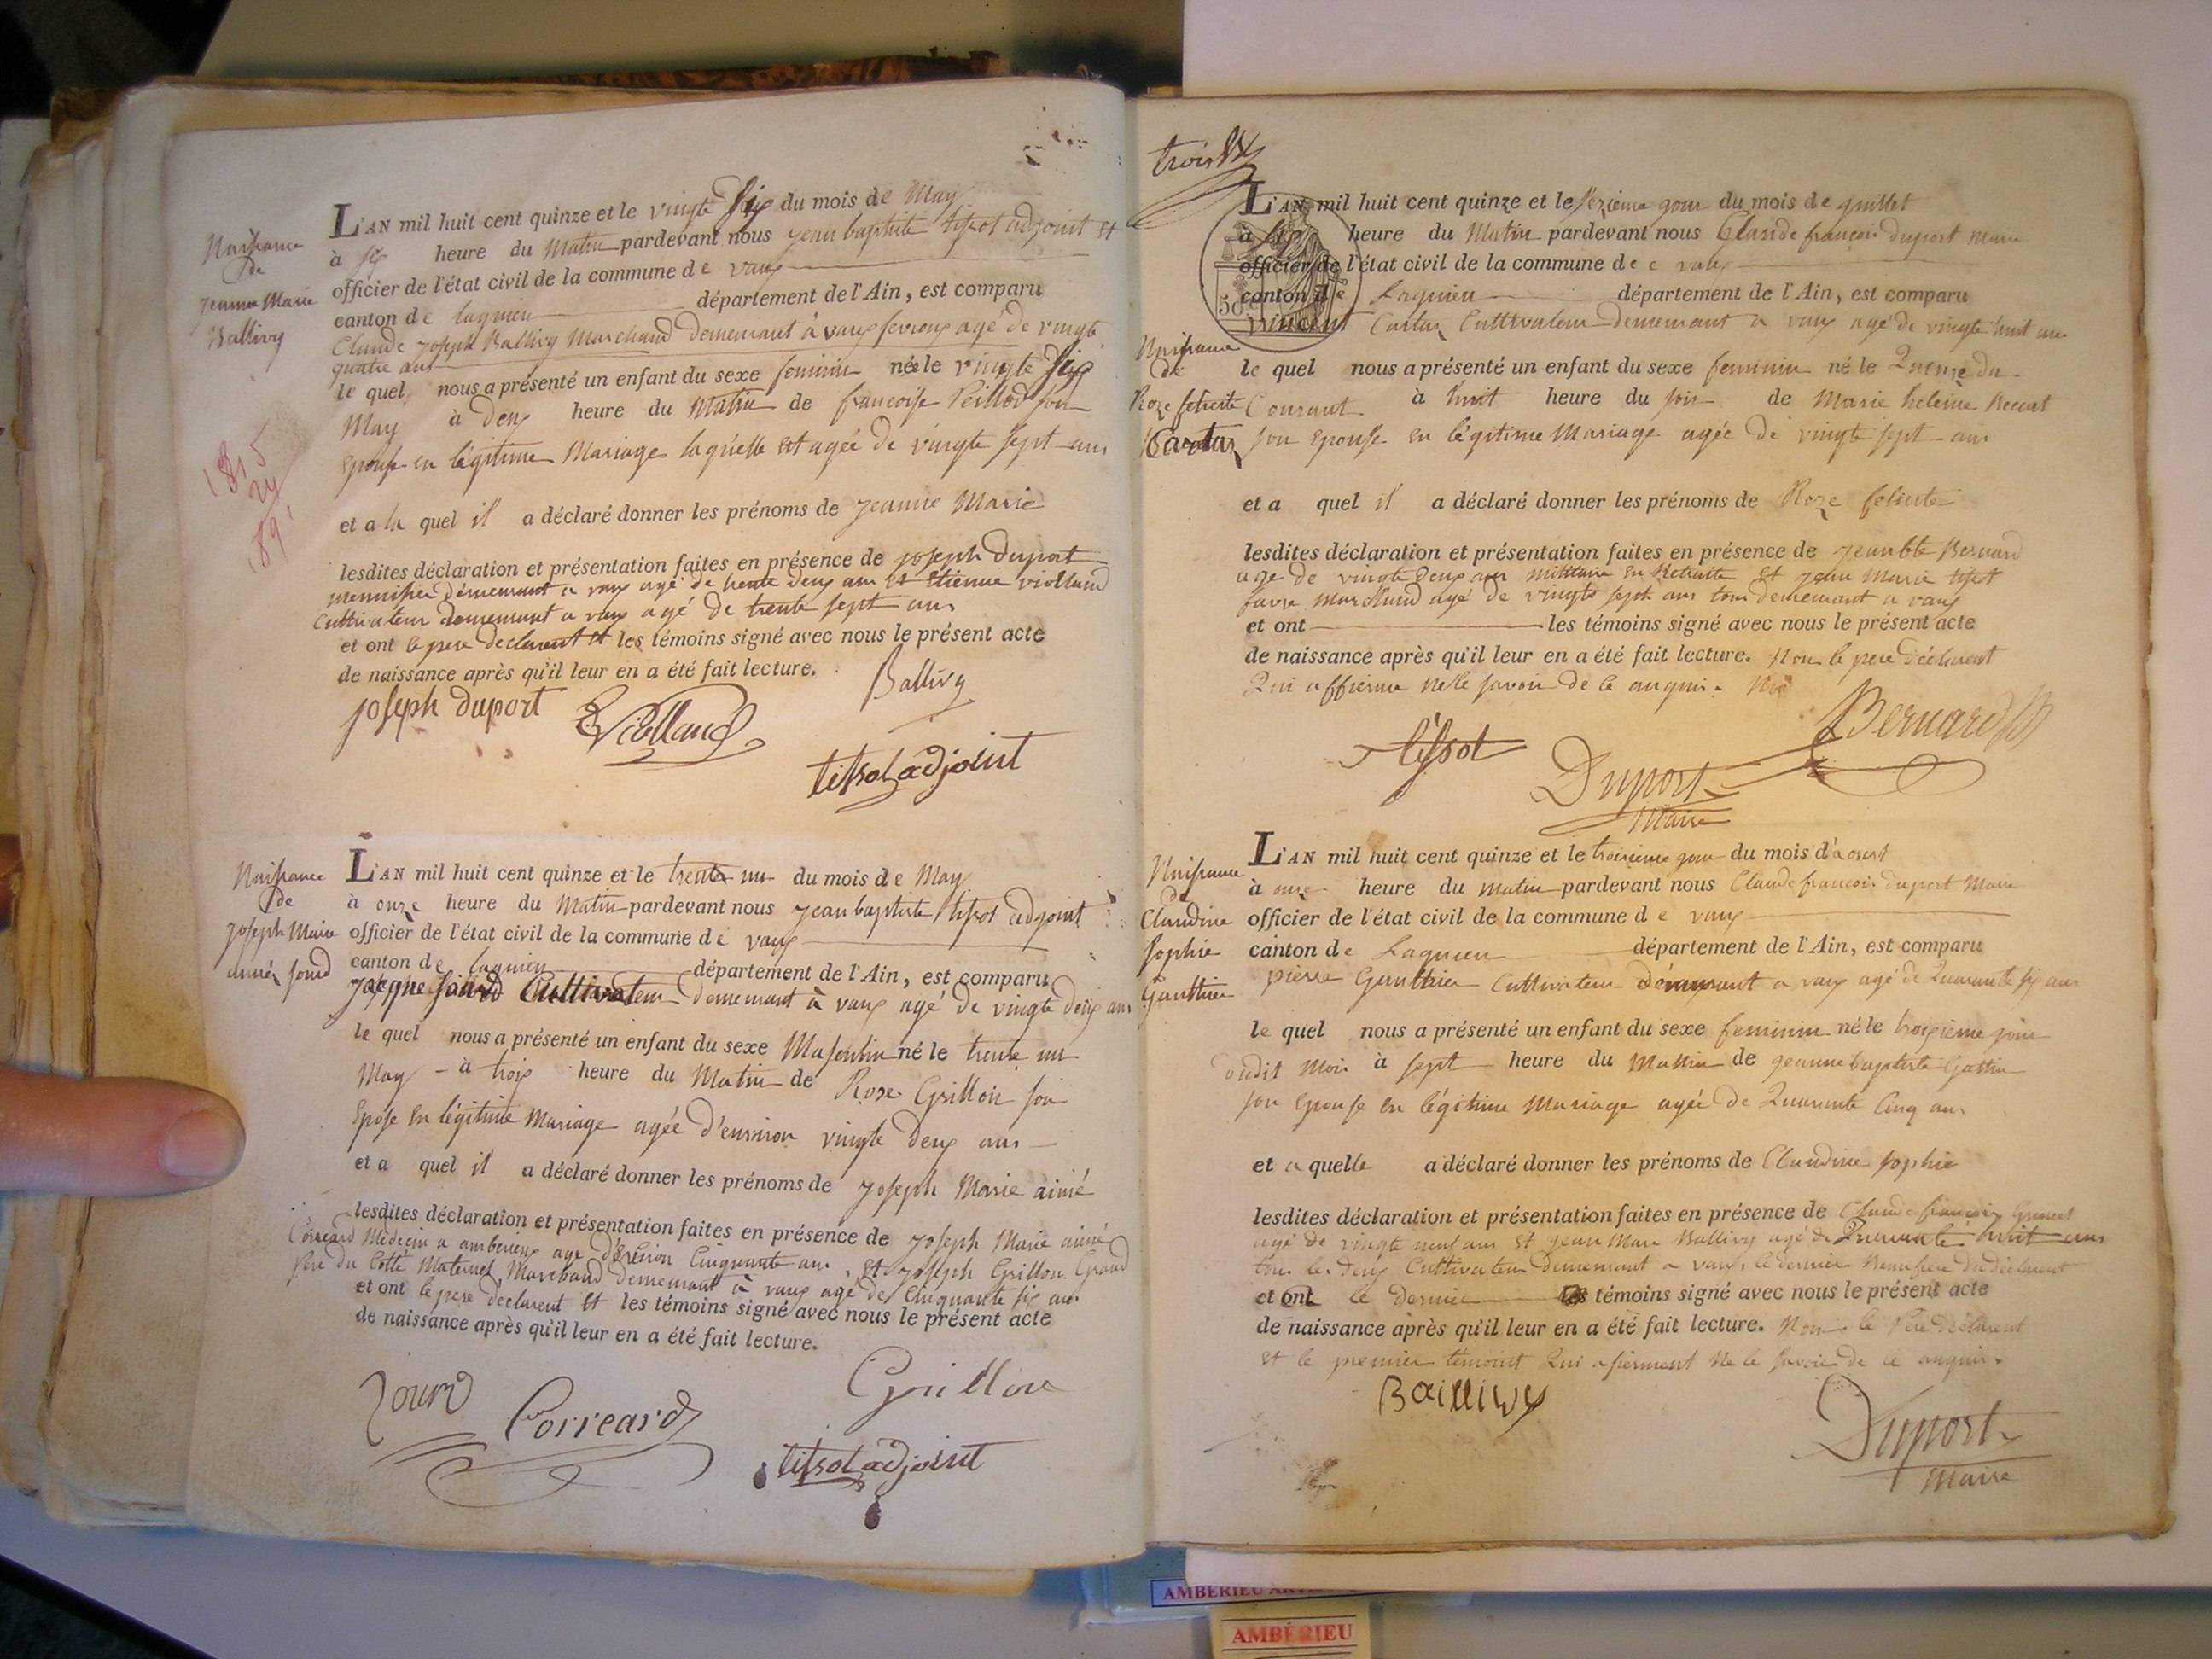 Naissance
de
jeanne Marie
Ballivy
L'AN mil huit cent quinze et le vingte six du mois de May
à six heure du Matin pardevant nous jean baptiste tissot adjoint et
officier de l'état civil de la commune de vaux
canton de lagnieu département de l'Ain, est comparu
Claude joseph Ballivy Marchand demeurant à vaux agé de vingte
quatre ans
le quel nous a présenté un enfant du sexe feminin née le vingte six
May à deux heure du Matin de francoise Peillod son
epouse en légitime Mariage laquelle est agée de vingte sept ans
et a la quel il a déclaré donner les prénoms de jeanne Marie
lesdites déclaration et présentation faites en présence de joseph duport
menuisier demeurant a vaux agé de trente deux ans et Etienne violland
Cultivateur demeurant a vaux agé de trente sept ans
et ont le pere declarent et les témoins signé avec nous le présent acte
de naissance après qu'il leur en a été fait lecture.
Ballivy
joseph duport
E Violland
tissot adjoint
1815
24
89
Naissance
de
joseph Marie
aimé jourd
L'AN mil huit cent quinze et le trente un du mois de May
à onze heure du Matin pardevant nous jean baptiste tissot adjoint
officier de l'état civil de la commune de vaux
canton de lagnieu département de l'Ain, est comparu
Cultivateur demeurant à vaux agé de vingte deux ans
le quel nous a présenté un enfant du sexe Masculin né le trente un
May à trois heure du Matin de Rose Grillon son
Epose En légitime Mariage agée d'environ vingte deux ans
et a quel il a déclaré donner les prénoms de joseph Marie aimé
lesdites déclaration et présentation faites en présence de joseph Marie aimé
Correard Médecin a amberieux age d'environ Cinquante ans, et joseph Grillon Grand
Pere du Cotté Maternel, Marchand demeurant à vaux agé de Cinquante six ans
et ont le pere declarent et les témoins signé avec nous le présent acte
de naissance après qu'il leur en a été fait lecture.
Jourd
Correard
Grillon
tissot adjoint
trois
Naissance
de
Roze felicite
Cartaz
L'AN mil huit cent quinze et le sezieme jour du mois de juillet
à six heure du Matin pardevant nous Claude francois duport maire
officier de l'état civil de la commune de vaux
canton de Lagnieu département de l'Ain, est comparu
vincent Cartaz Cultivateur demeurant a vaux agé de vingte huit ans
le quel nous a présenté un enfant du sexe feminin né le Quinze du
Courant à huit heure du soir de Marie heleine
son epouse en légitime Mariage agée de vingte sept ans
et a quel il a déclaré donner les prénoms de Roze felicite
lesdites déclaration et présentation faites en présence de jean bte Bernard
age de vingte deux ans militaire en Retraite et jean Marie tissot
favre Marchand agé de vingte sept ans tous demeurant a vaux
et ont les témoins signé avec nous le présent acte
de naissance après qu'il leur en a été fait lecture. Non le pere déclarent
Qui affierme ne le savoir de ce anquis.
tissot
Bernard
Duport
Maire
Naissance
de
Claudine
Sophie
Gauthier
L'AN mil huit cent quinze et le troisieme jour du mois d'aoust
à onze heure du matin pardevant nous Claude francois duport Maire
officier de l'état civil de la commune de vaux
canton de Lagnieu département de l'Ain, est comparu
pierre Gauthier Cultivateur demeurant a vaux agé de Quarante six ans
le quel nous a présenté un enfant du sexe feminin né le troisieme jour
dudit Mois à sept heure du Mattin de jeanne baptiste
son Epouse en légitime Mariage agée de Quarante Cinq ans
et a quelle a déclaré donner les prénoms de Claudine Sophie
lesdites déclaration et présentation faites en présence de Claude francois
agé de vingte neuf ans et jean Marie Ballivy agé de Quarante huit ans
tous les deux Cultivateur demeurant a vaux, le dernier Beaufrere du declarent
et ont le dernier les témoins signé avec nous le présent acte
de naissance après qu'il leur en a été fait lecture. Non le Pere declarent
et le premier temoint Qui afierment ne le savoir de ce anquis.
Baillivy
Duport
Maire
AMBERIEU
AMBÉRIEU